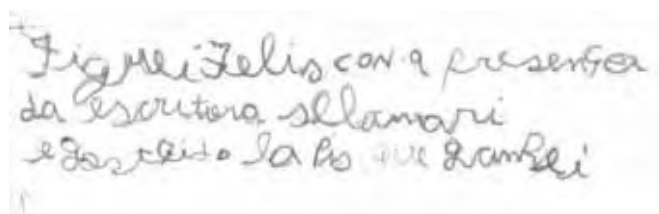 Fiquei Felis con a presença
da escritora sllamari
e gostei do la pis que ganhei